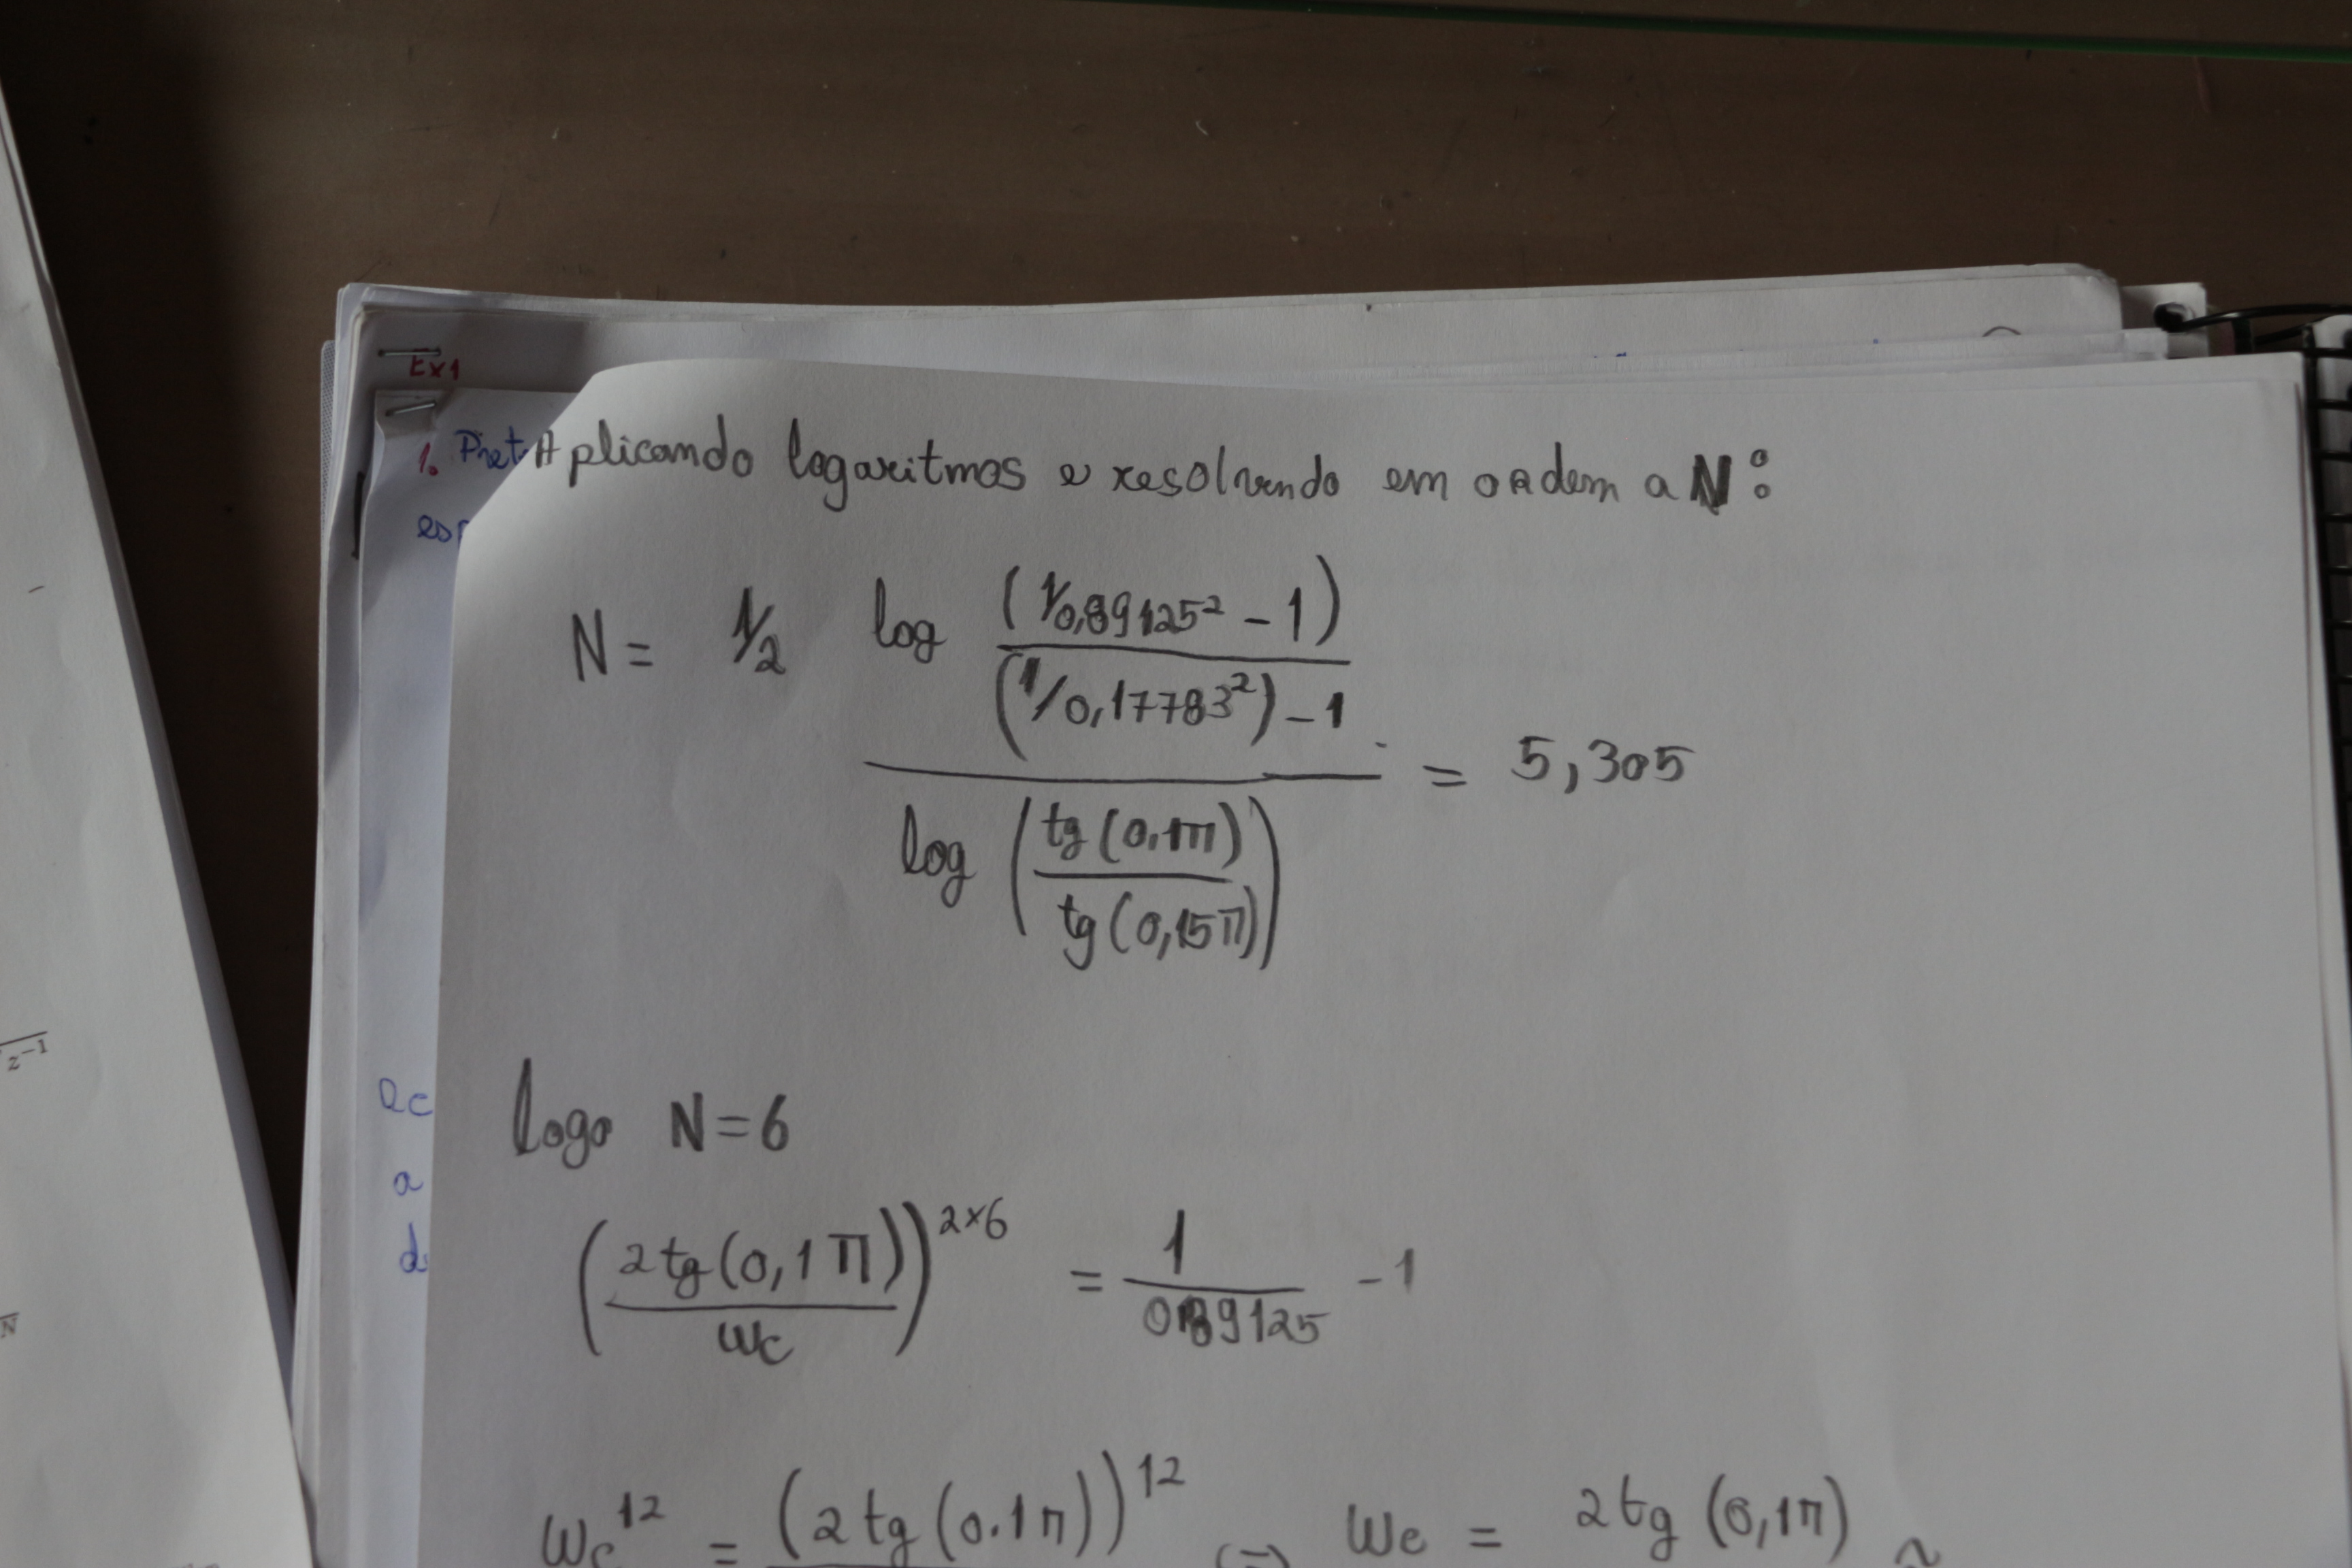 Ex1
1. Pret
esp
Aplicando logaritmos e resolvendo em ordem a N:
N = 1/2 log (1/0,89125² - 1)
(1/0,17783²) - 1
= 5,305
log ( tg (0,1π)
tg (0,15π) )
logo N = 6
( 2 tg (0,1 π) )^2×6 = 1 - 1
wc 0,89125
wc^12 = (2 tg (0.1π))^12 (=) wc = 2 tg (0,1π) ~
z⁻¹
N
De
a
d